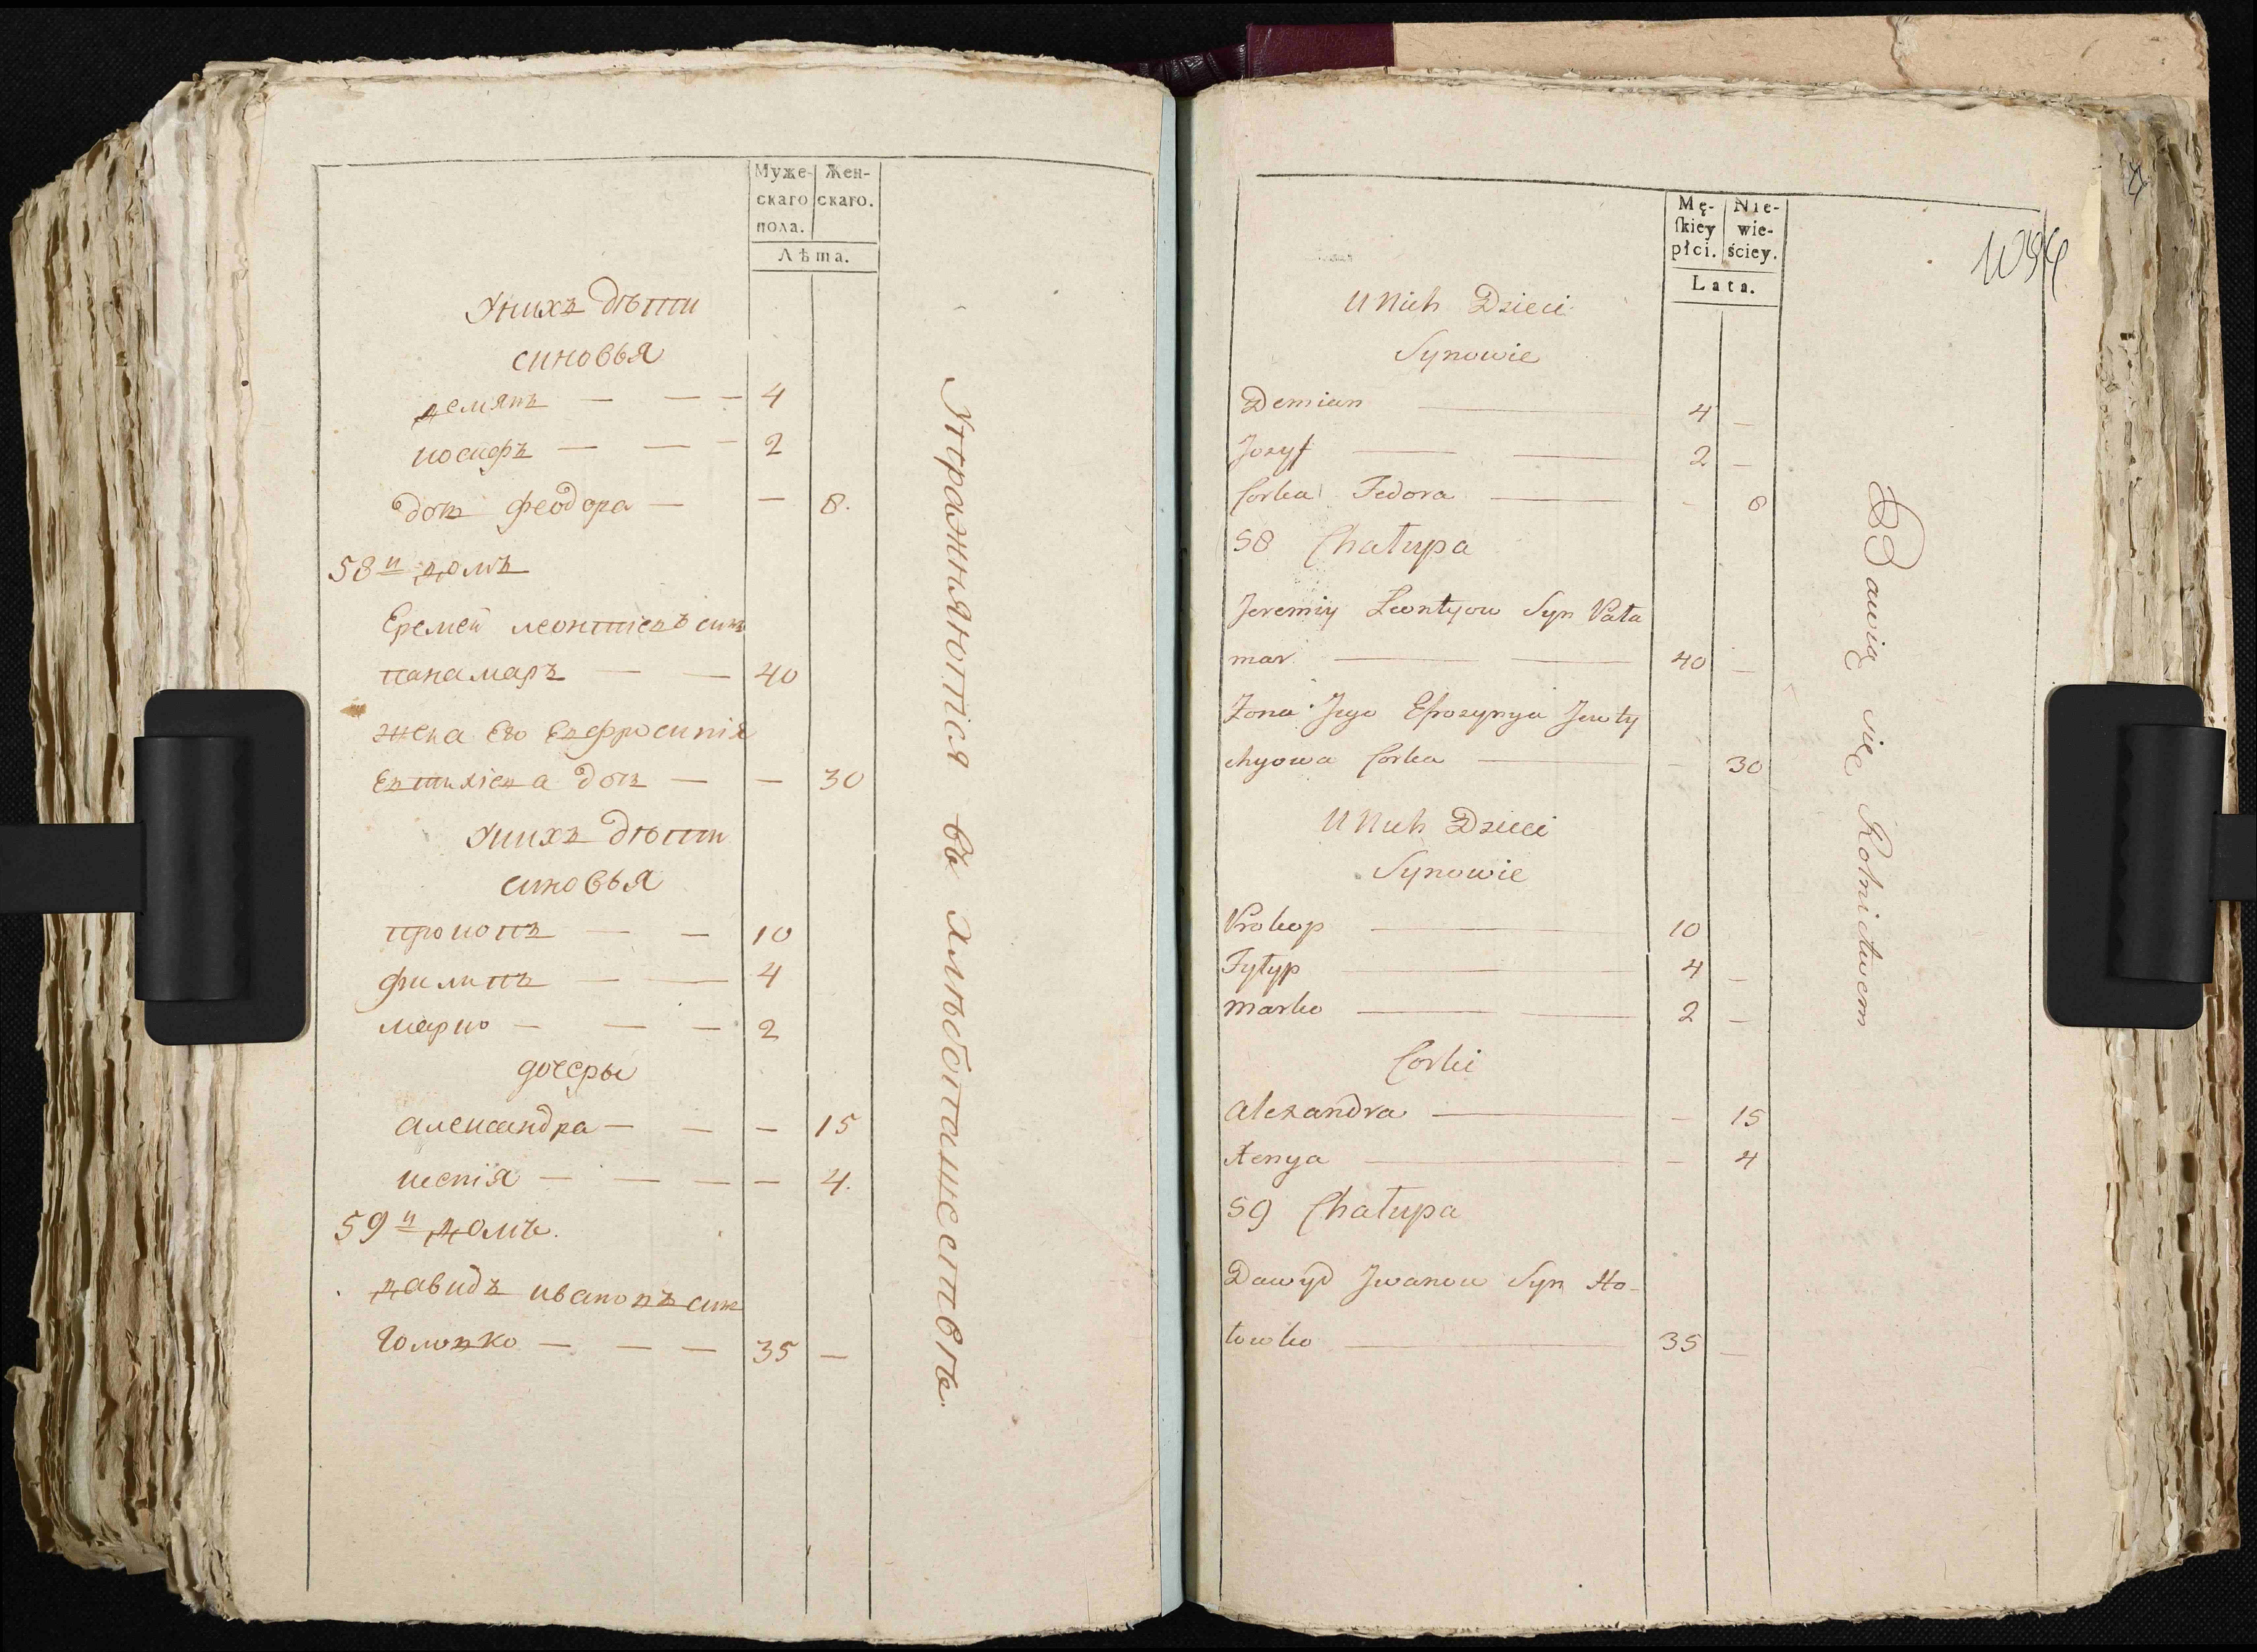 Муже- Жен-
скаго скаго.
пола.
Лѣта.
Унихъ дѣти
синовья
демянъ — — — 4
иосифъ — — — 2
доч феодора — — 8.
58й домъ
Еремей леонтіевъ син
панамаръ — — 40
жена Его Евфросинія
Евтихіева доч — — 30
Унихъ дѣти
синовья
прокопъ — — 10
филипъ — — 4
марко — — — 2
дочеры
александра — — — 15
ксенія — — — — 4.
59й домъ.
давидъ ивановъ син
Головко — — — 35 —
Упражняются въ хлѣбопашествѣ.
Mę- Nie-
skiey wie-
płci. ściey.
Lata.
U Nich Dzieci
Synowie
Demian — 4 —
Jozyf — — 2 —
Corka Fedora — - 8
58 Chałupa
Jeremiy Leontyow Syn Pała
mar — — 40 —
Żona Jego Efrozynya Jewty
chyowa Corka — - 30
U Nich Dzieci
Synowie
Prokop — 10
Fyłyp — 4 —
Marko — — 2 —
Corki
Alexandra — - 15
Xenya — - 4
59 Chałupa
Dawyd Jwanow Syn Ho-
łowko — 35 —
Bawią się Rolnictwem